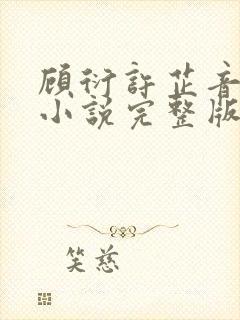 顾衍許芷音
小説完整版
笑慈